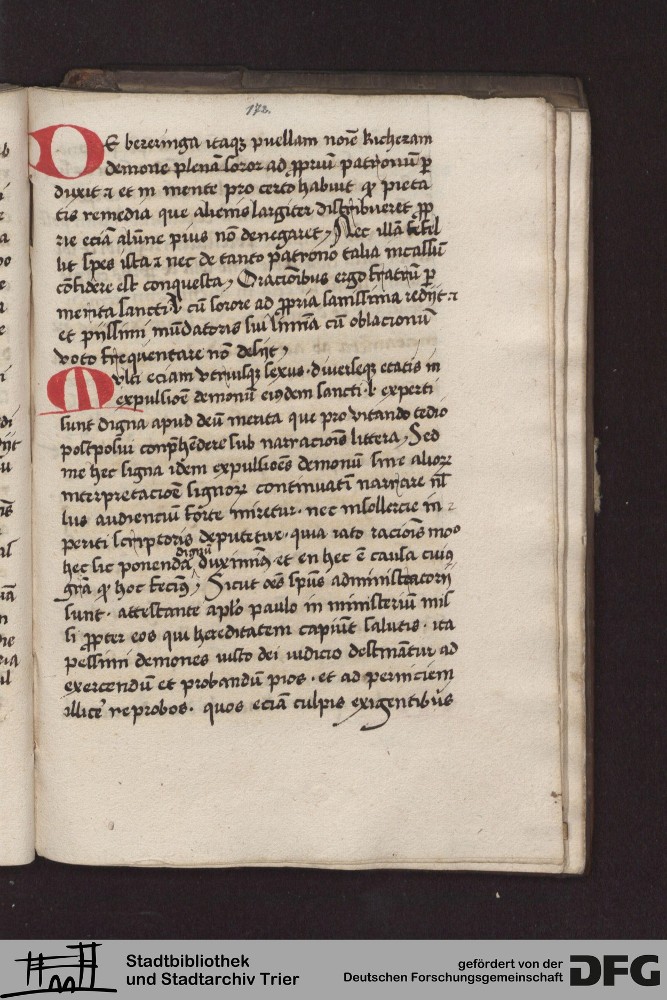 172.
DE bereringa itaqꝫ puellam noīe Richezam
demone plenā soror ad ꝓpriū patronū ꝑ
duxit ⁊ et in mente pro certo habuit ꝙ pieta
tis remedia que alienis largiter distribueret ꝓp
rie eciā alūne pius nō denegaret, Nec illā fefel
lit spes ista ⁊ nec de tanto patrono talia incassū
cōfidere est conquesta, Oracionibus ergo fratrū ꝑ
merita sancti cū sorore ad ꝓpria sanissima redijt ⁊
et pijssimi mūdatoris sui limina cū oblacionū
voto frequentare nō desijt,
Multi eciam vtriusqꝫ sexus · diuerseqꝫ etatis in
expulsioē demonū eiusdem sancti experti
sunt digna apud deū merita que pro vitando tedio
postposui conp̄hēdere sub narracionis littera, Sed
me hec signa idem expulsioēs demonū sine alioꝝ
interpretacioē signoꝝ continuatī narrare nl̄
lus audienciū forte miretur · nec insollercie in
periti scriptoris deputetur · quia rato racionis mo
hec sic ponenda dignū duximꝰ · et en hec ē causa cuiꝰ
grā ꝙ hoc fecimꝰ, Sicut oēs spūs administratorij
sunt · attestante aplo paulo in ministeriū mis
si ꝓpter eos qui hereditatem capiūt salutis · ita
pessimi demones iusto dei iudicio destinātur ad
exercendū et probandū pios · et ad perniciem
illicē reprobos · quos eciā culpis exigentibus
Stadtbibliothek
und Stadtarchiv Trier
gefördert von der
Deutschen Forschungsgemeinschaft
DFG